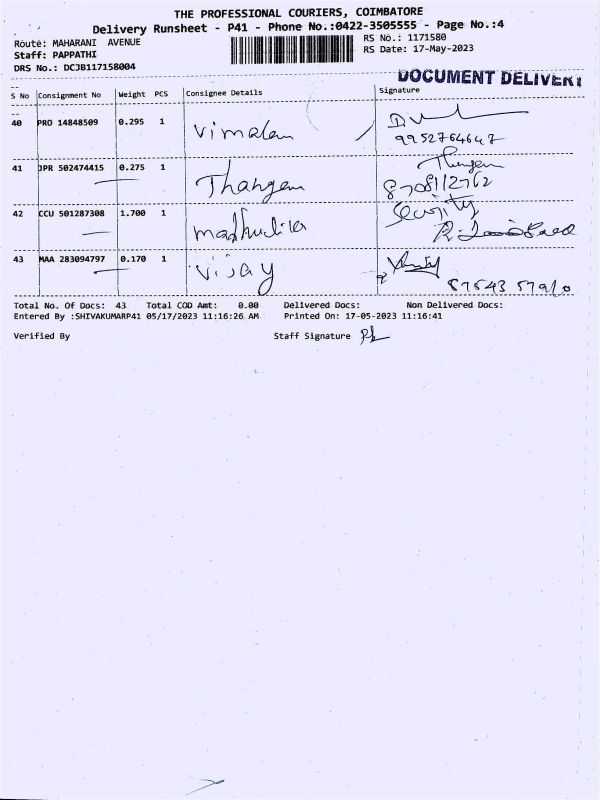 THE PROFESSIONAL COURIERS, COIMBATORE
Delivery Runsheet - P41 - Phone No.:0422-3505555 - Page No.:4
Route: MAHARANI AVENUE
RS No.: 1171580
Staff: PAPPATHI
RS Date: 17-May-2023
DRS No.: DCJB117158004
DOCUMENT DELIVERY
S No Consignment No Weight PCS Consignee Details Signature
40 PRO 14848509 0.295 1 Vimalan
9952764647
41 JPR 502474415 0.275 1 Thangam
8708112762
42 CCU 501287308 1.700 1
Security
43 MAA 283094797 0.170 1 Vijay
Total No. Of Docs: 43 Total COD Amt: 0.00 Delivered Docs: Non Delivered Docs:
Entered By :SHIVAKUMARP41 05/17/2023 11:16:26 AM Printed On: 17-05-2023 11:16:41
Verified By Staff Signature